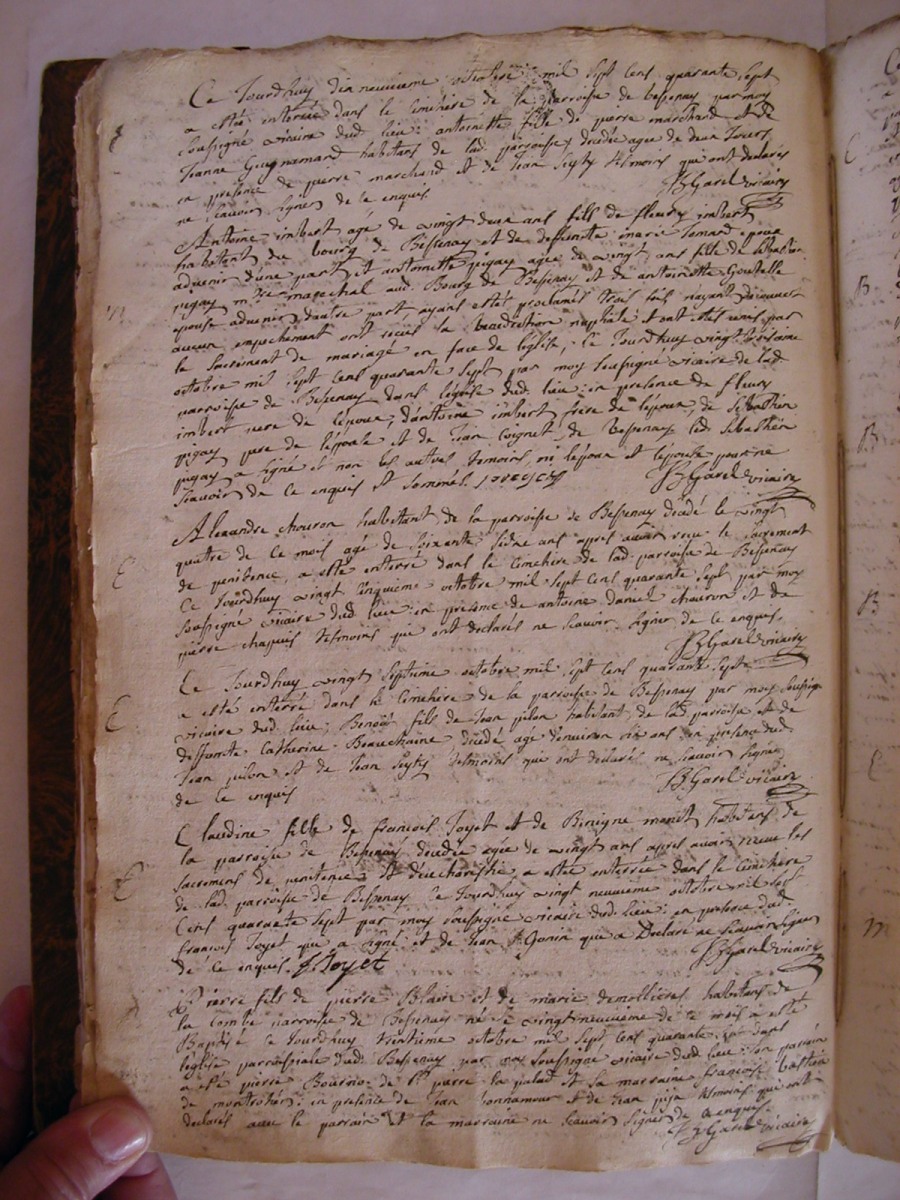 Ce Jourdhuy dix neuvieme octobre mil sept cens quarante sept
a esté enterrée dans le cimetiere de la parroisse de bessenay par moy
E
soussigné vicaire dud. lieu: antoinette fille de pierre marchand et de
Jeanne habitans de lad. parroisse, decedée agée de deux Jours
en presence de pierre marchand et de Jean temoins qui ont declarés
ne scavoir signer de ce enquis.
Garel vicaire
Antoine imbert agé de vingt deux ans fils de fleury imbert
habitant du bourg de Bessenay et de deffunte marie epoux
advenir d'une part, et antoinette pigay agée de vingt ans fille de sebastien
m
pigay mtre marechal aud. Bourg de Bessenay et de antoinette
epouse advenir d'autre part, ayant estés proclamés trois fois n'ayant decouvert
aucun empechement ont reçeus la benediction nuptiale et ont estés unis par
le sacrement de mariage en face de l'eglise, ce Jourdhuy vingt troisieme
octobre mil sept cens quarante sept par moy soussigné vicaire de lad.
parroisse de Bessenay dans l'eglise dud. lieu: en presence de fleury
imbert pere de l'epoux, d'antoine imbert frere de l'epoux, de sebastien
pigay pere de l'epouse et de Jean coignet, de Bessenay led. sebastien
pigay a signé et non les autres temoins, ni l'epoux et l'epouse pour ne
scavoir de ce enquis et sommés.
Garel vicaire
Alexandre chouron habitant de la parroisse de Bessenay decedé le vingt
quatre de ce mois agé de soixante seize ans apres avoir reçeu le sacrement
E
de penitence, a esté enterré dans le cimetiere de lad. parroisse de Bessenay
ce Jourdhuy vingt cinquieme octobre mil sept cens quarante sept par moy
soussigné vicaire dud. lieu: en presence de antoine daniel chouron et de
pierre chapuis temoins qui ont declarés ne scavoir signer de ce enquis.
Garel vicaire
Ce Jourdhuy vingt septieme octobre mil sept cens quarante sept
a esté enterré dans le cimetiere de la parroisse de Bessenay par moy soussigné
E
vicaire dud. lieu, Benoit fils de Jean pilon habitant de lad. parroisse et de
deffunte Catherine Beauchaine decedé agé d'environ six ans en presence dud.
Jean pilon et de Jean temoins qui ont declarés ne scavoir signer
de ce enquis
Garel vicaire
Claudine fille de francois Joyet et de Benigne habitans de
la parroisse de Bessenay decedée agée de vingt ans apres avoir reçeue les
E
sacremens de penitence et d'eucharistie, a estée enterrée dans le cimetiere
de lad. parroisse de Bessenay ce Jourdhuy vingt neuvieme octobre mil sept
cens quarante sept par moy soussigné vicaire dud. lieu: en presence dud.
francois Joyet qui a signé: et de Jean Gonin qui a declaré ne scavoir signer
de ce enquis. f. Joyet
Garel vicaire
Pierre fils de pierre Blaise et de marie demollieres habitans de
la combe parroisse de Bessenay né le vingt neuvieme de ce mois a esté
Baptisé ce Jourdhuy trentieme octobre mil sept cens quarante sept dans
l'eglise parroissiale dud. Bessenay par moy soussigné vicaire dud. lieu: son parrain
a esté pierre de st. pierre la palud et sa marraine francoise
de montrotier: en presence de Jean bonnamour et de Jean temoins qui ont
declarés avec le parrain et la marraine ne scavoir signer de ce enquis.
Garel vicaire
C
B
B
B
E
m